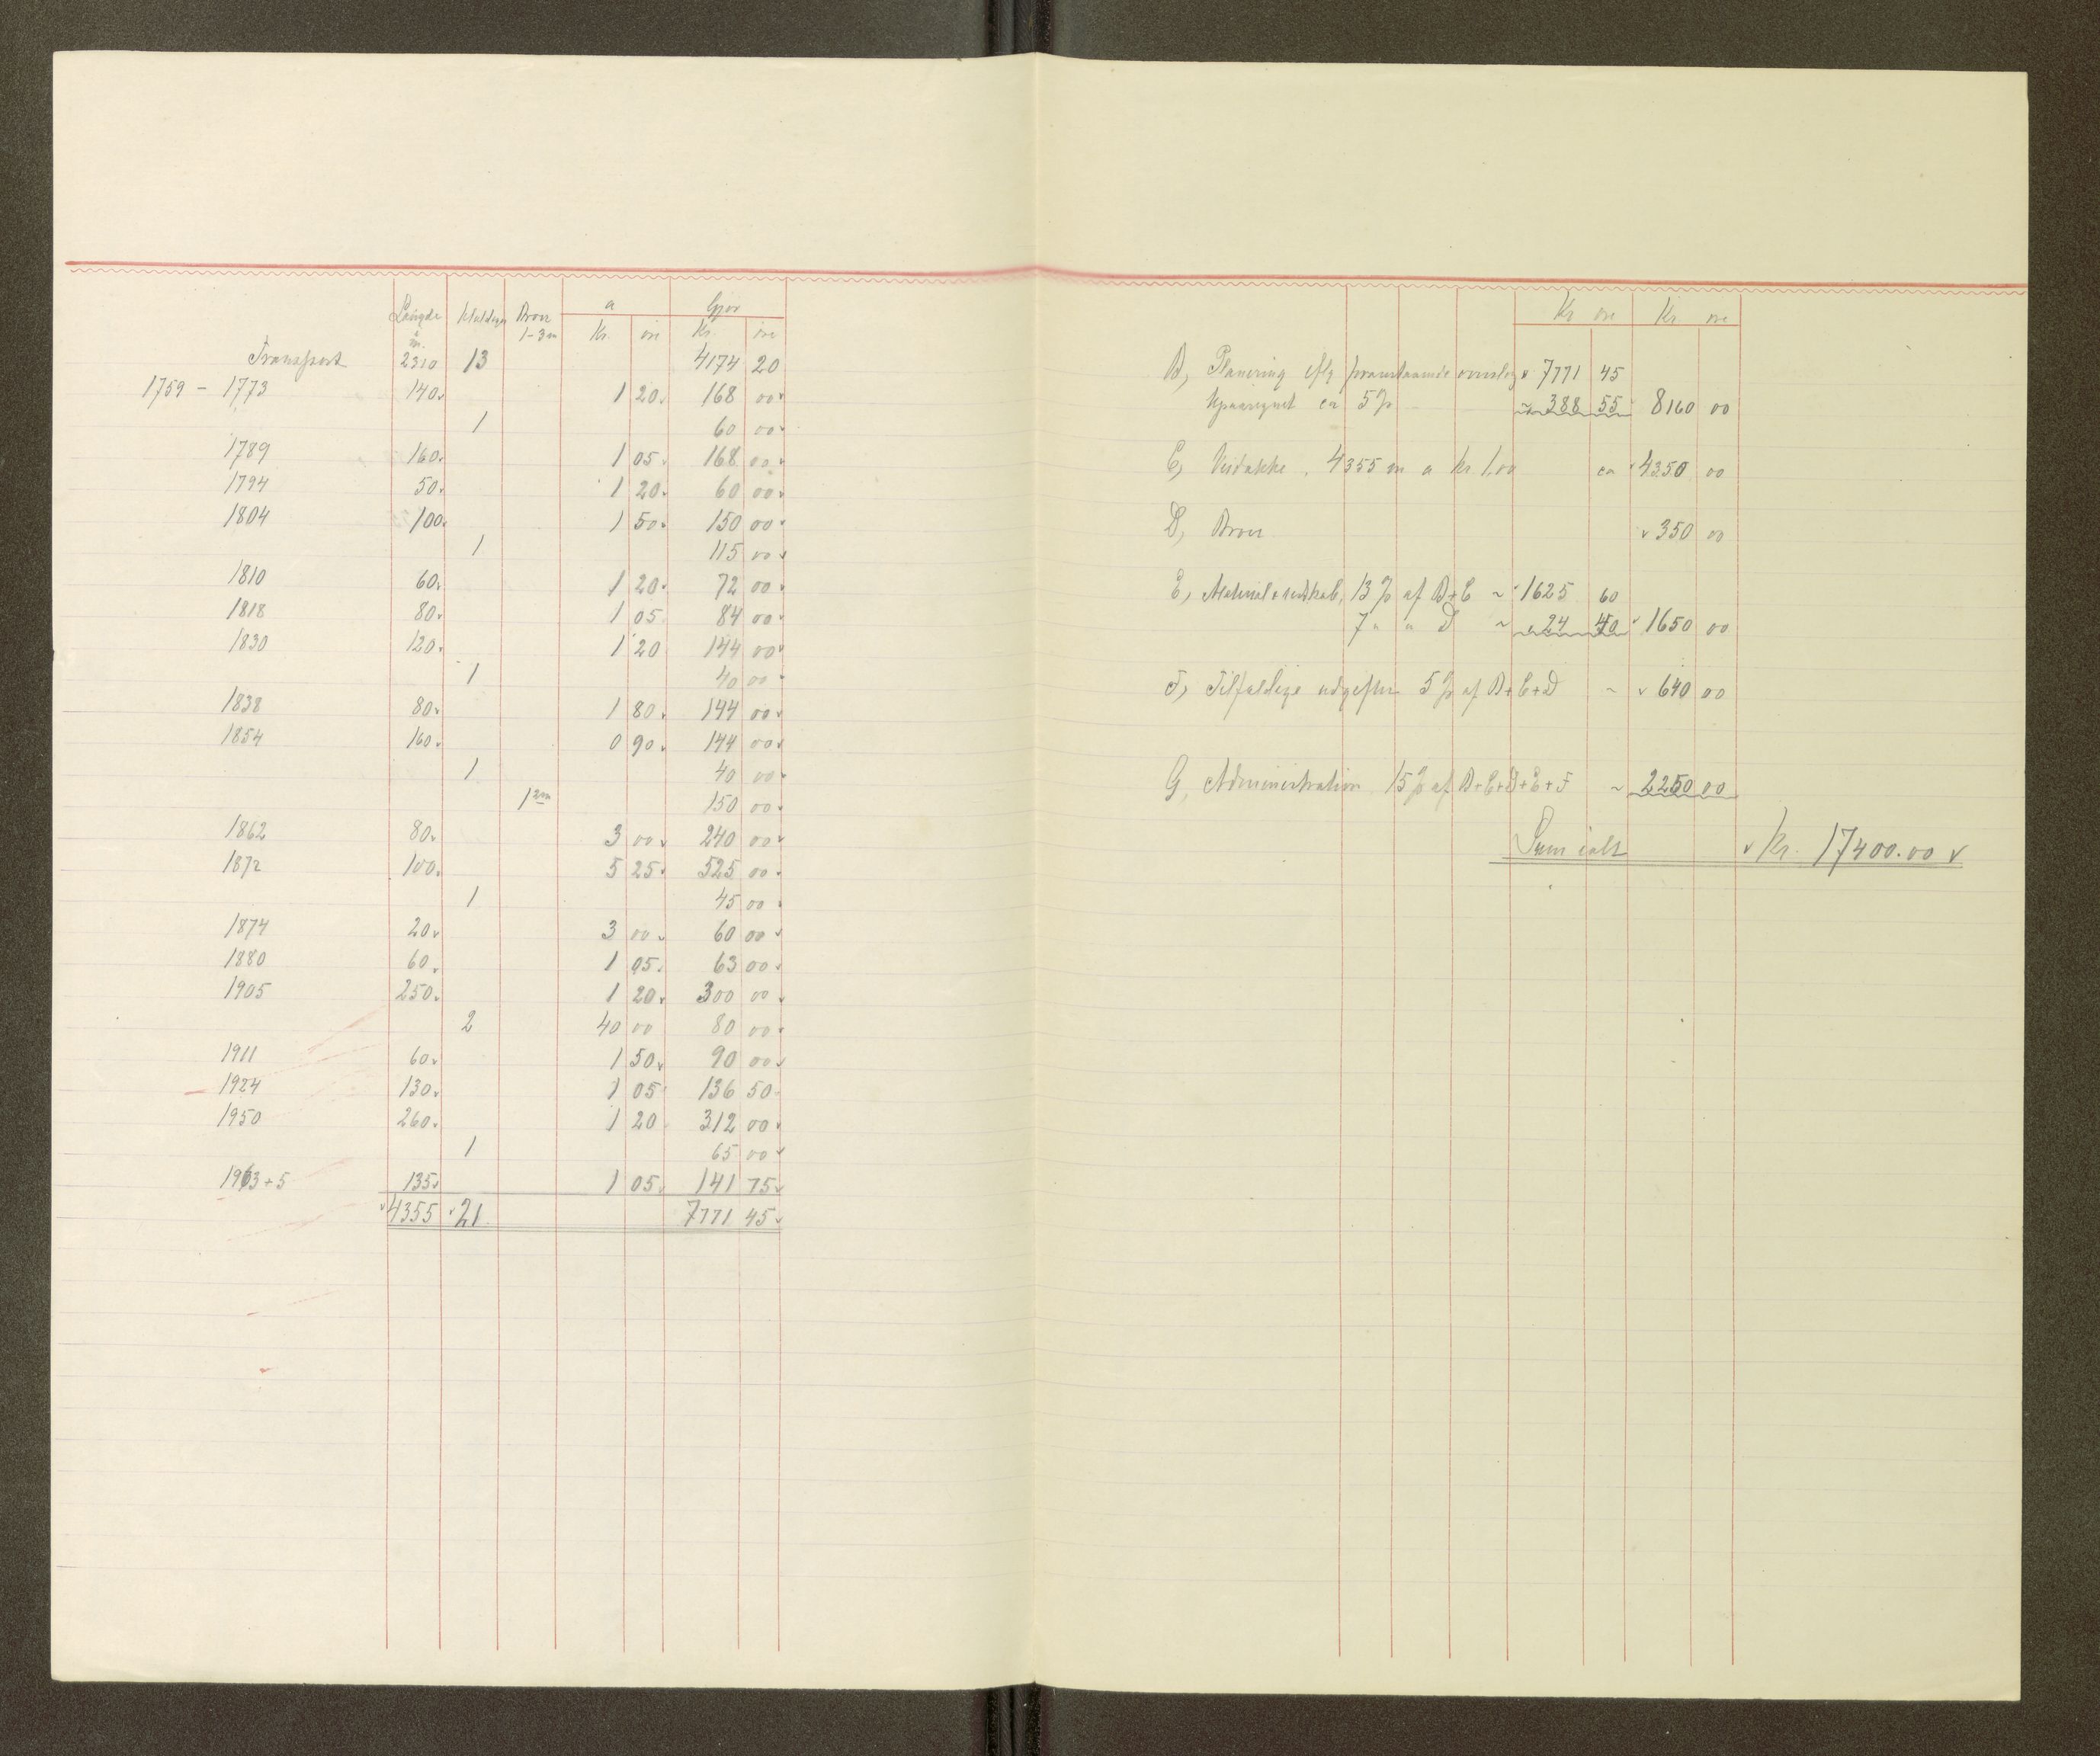 Længde Klatd Broer a Gjør
i m. 1-3 m Kr. øre Kr. øre
Transport 2310 13 4174 20
1759 - 1773 140 1 20 168 00
1 60 00
1789 160 1 05 168 00
1794 50 1 20 60 00
1804 100 1 50 150 00
1 115 00
1810 60 1 20 72 00
1818 80 1 05 84 00
1830 120 1 20 144 00
1 40 00
1838 80 1 80 144 00
1854 160 0 90 144 00
1 40 00
1 2m 150 00
1862 80 3 00 240 00
1872 100 5 25 525 00
1 45 00
1874 20 3 00 60 00
1880 60 1 05 63 00
1905 250 1 20 300 00
2 40 00 80 00
1911 60 1 50 90 00
1924 130 1 05 136 50
1950 260 1 20 312 00
1 65 00
1963+5 135 1 05 141 75
4355 21 7771 45
Kr øre Kr øre
B, Planering iflg foranstaaende overslag 7771 45
Upaaregnet ca 5% ~ 388 55 8160 00
C, Veidække, 4355 m a kr 1,00 ca 4350 00
D, Broer 350 00
E, Material & redskab, 13 % af B+C ~ 1625 60
7 " " D ~ 24 40 1650 00
F, Tilfældige udgifter 5 % af B+C+D ~ 640 00
G, Administration 15 % af B+C+D+E+F ~ 2250 00
Sum ialt Kr. 17400.00